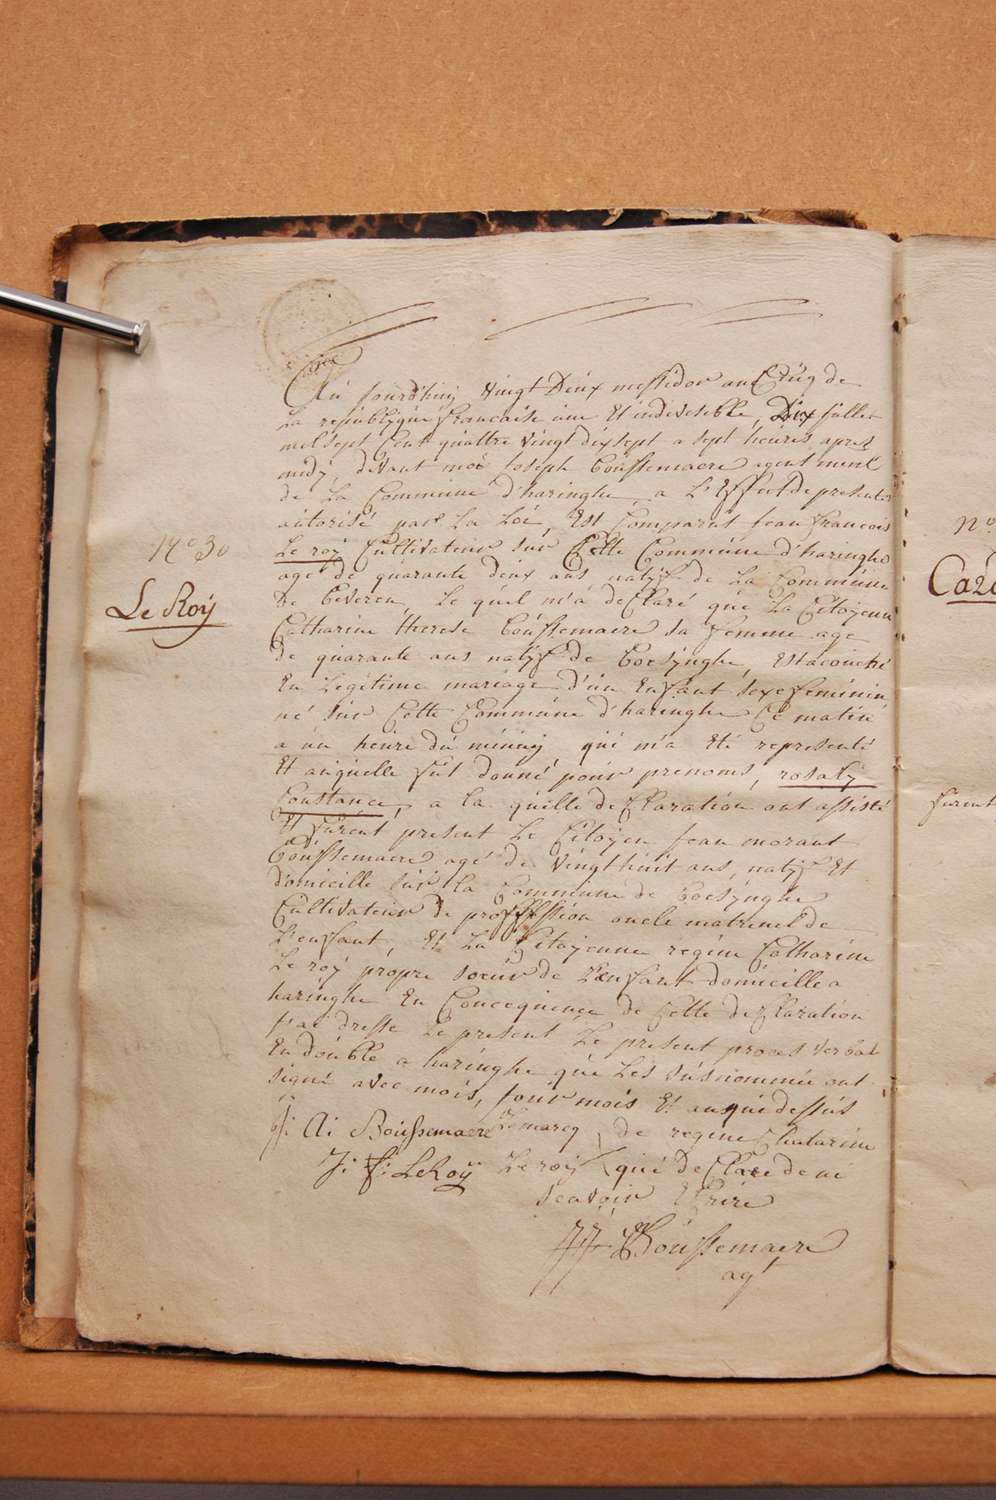 Au jourd'huij vingt Deux messidor an Cinq de
La republique francaise une Et indivisible, Dix juillet
mil sept Cent quattre vingt dix sept a sept heures apres
midy, devant moi Joseph Boussemaere agent munl
de La Commune d'haringhe, a L'Effect de presente
autorisé par La Loi, Est Comparut jean francois
Le roij Cultivateur sur Cette Commune d'haringhe
agé de quarante deux ans, natif de La Commune
de beveren, Le quel m'a deClaré que La Citoyenne
Catharine therese Boussemaere sa femme age
de quarante ans natif de boesynghe, Est acouché
En Legitime mariage d'un Enfant sexe feminin
né sur Cette Commune d'haringhe Ce matin
a un heure du minuij qui m'a Eté representé
Et auquelle fut donné pour prenoms, rosaly
N.o 30
Le Roÿ
Constance, a la quelle deClaration ont assisté
Et furent present Le Citoyen jean
Boussemaere agé de vingt huit ans, natif Et
domicille sur La Commune de boesynghe
Cultivateur de profession oncle matrenel de
L'enfant, Et La Citoyenne regine Catharine
Le roij propre soeur de L'enfant domicille a
haringhe En Concequence de Cette deClaration
j'ai dresse Le present Le present proces verbal
En double a haringhe que Les susnommée ont
signé avec mois, jour mois Et an que dessus
Ai Boussemaere La marcq, de regine Chatarine
J: f: LeRoÿ Le roij qui deClare de ni
scavoir Ecrire
JJ Boussemaere
agt
N.o
furent